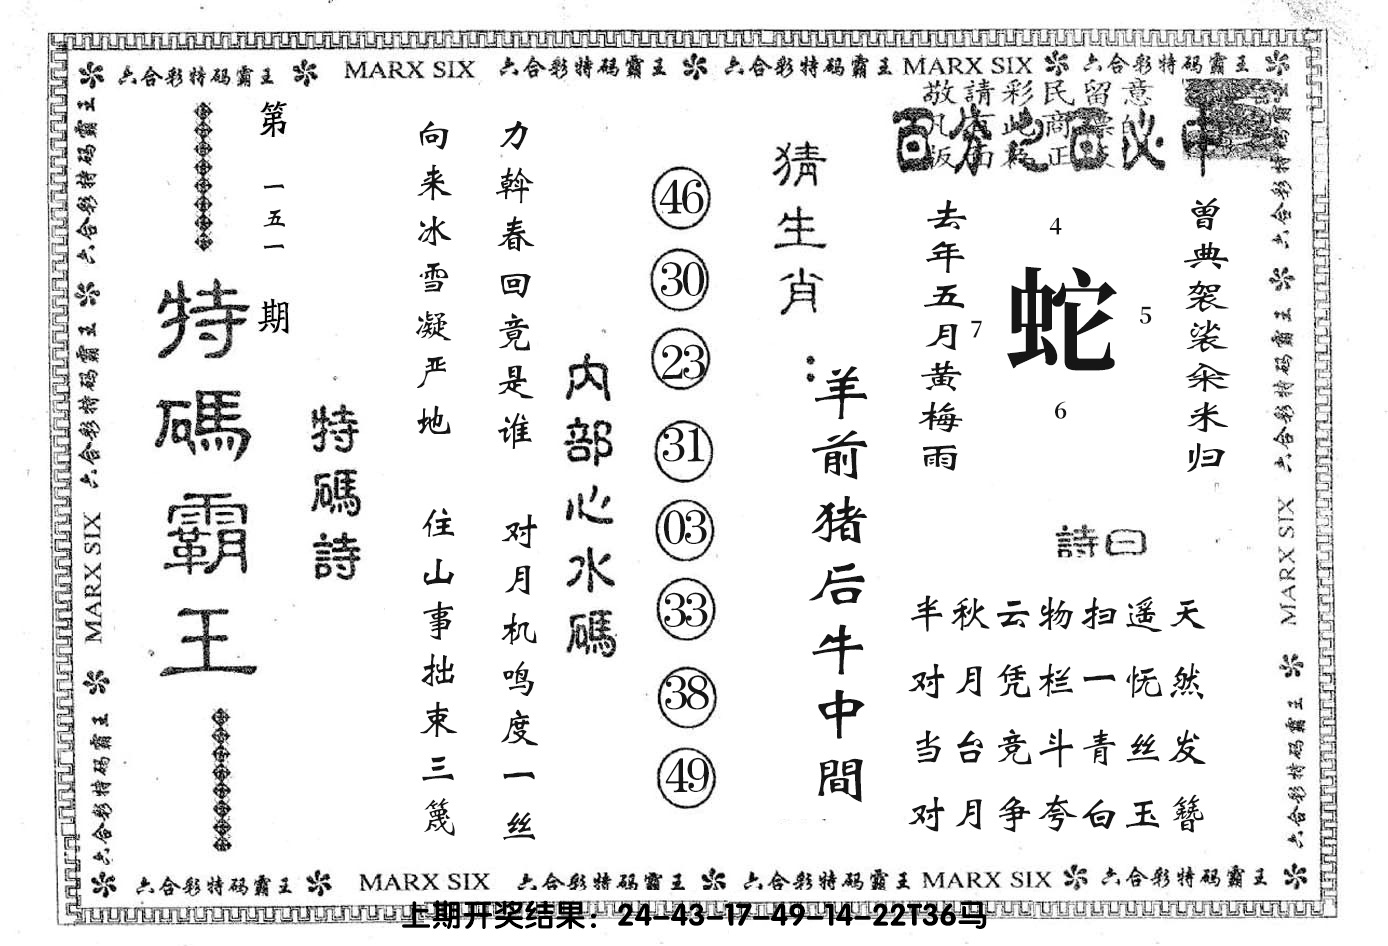 六合彩特码霸王 MARX SIX 六合彩特码霸王 六合彩特码霸王 MARX SIX 六合彩特码霸王
敬請彩民留意
百分之百必中
曾典袈裟籴米归
4
蛇
7
5
6
去年五月黄梅雨
詩曰
半秋云物扫遥天
对月凭栏一怃然
当台竞斗青丝发
对月争夸白玉簪
猜生肖：
羊前猪后牛中間
46
30
23
31
03
33
38
49
内部心水碼
力斡春回竟是谁
对月机鸣度一丝
向来冰雪凝严地
住山事拙束三篾
特碼詩
第一五一期
特碼霸王
六合彩特码霸王 六合彩特码霸王 MARX SIX 六合彩特码霸王
六合彩特码霸王 六合彩特码霸王 MARX SIX 六合彩特码霸王
六合彩特码霸王 MARX SIX 六合彩特码霸王 六合彩特码霸王 MARX SIX 六合彩特码霸王
上期开奖结果：24-43-17-49-14-22T36马